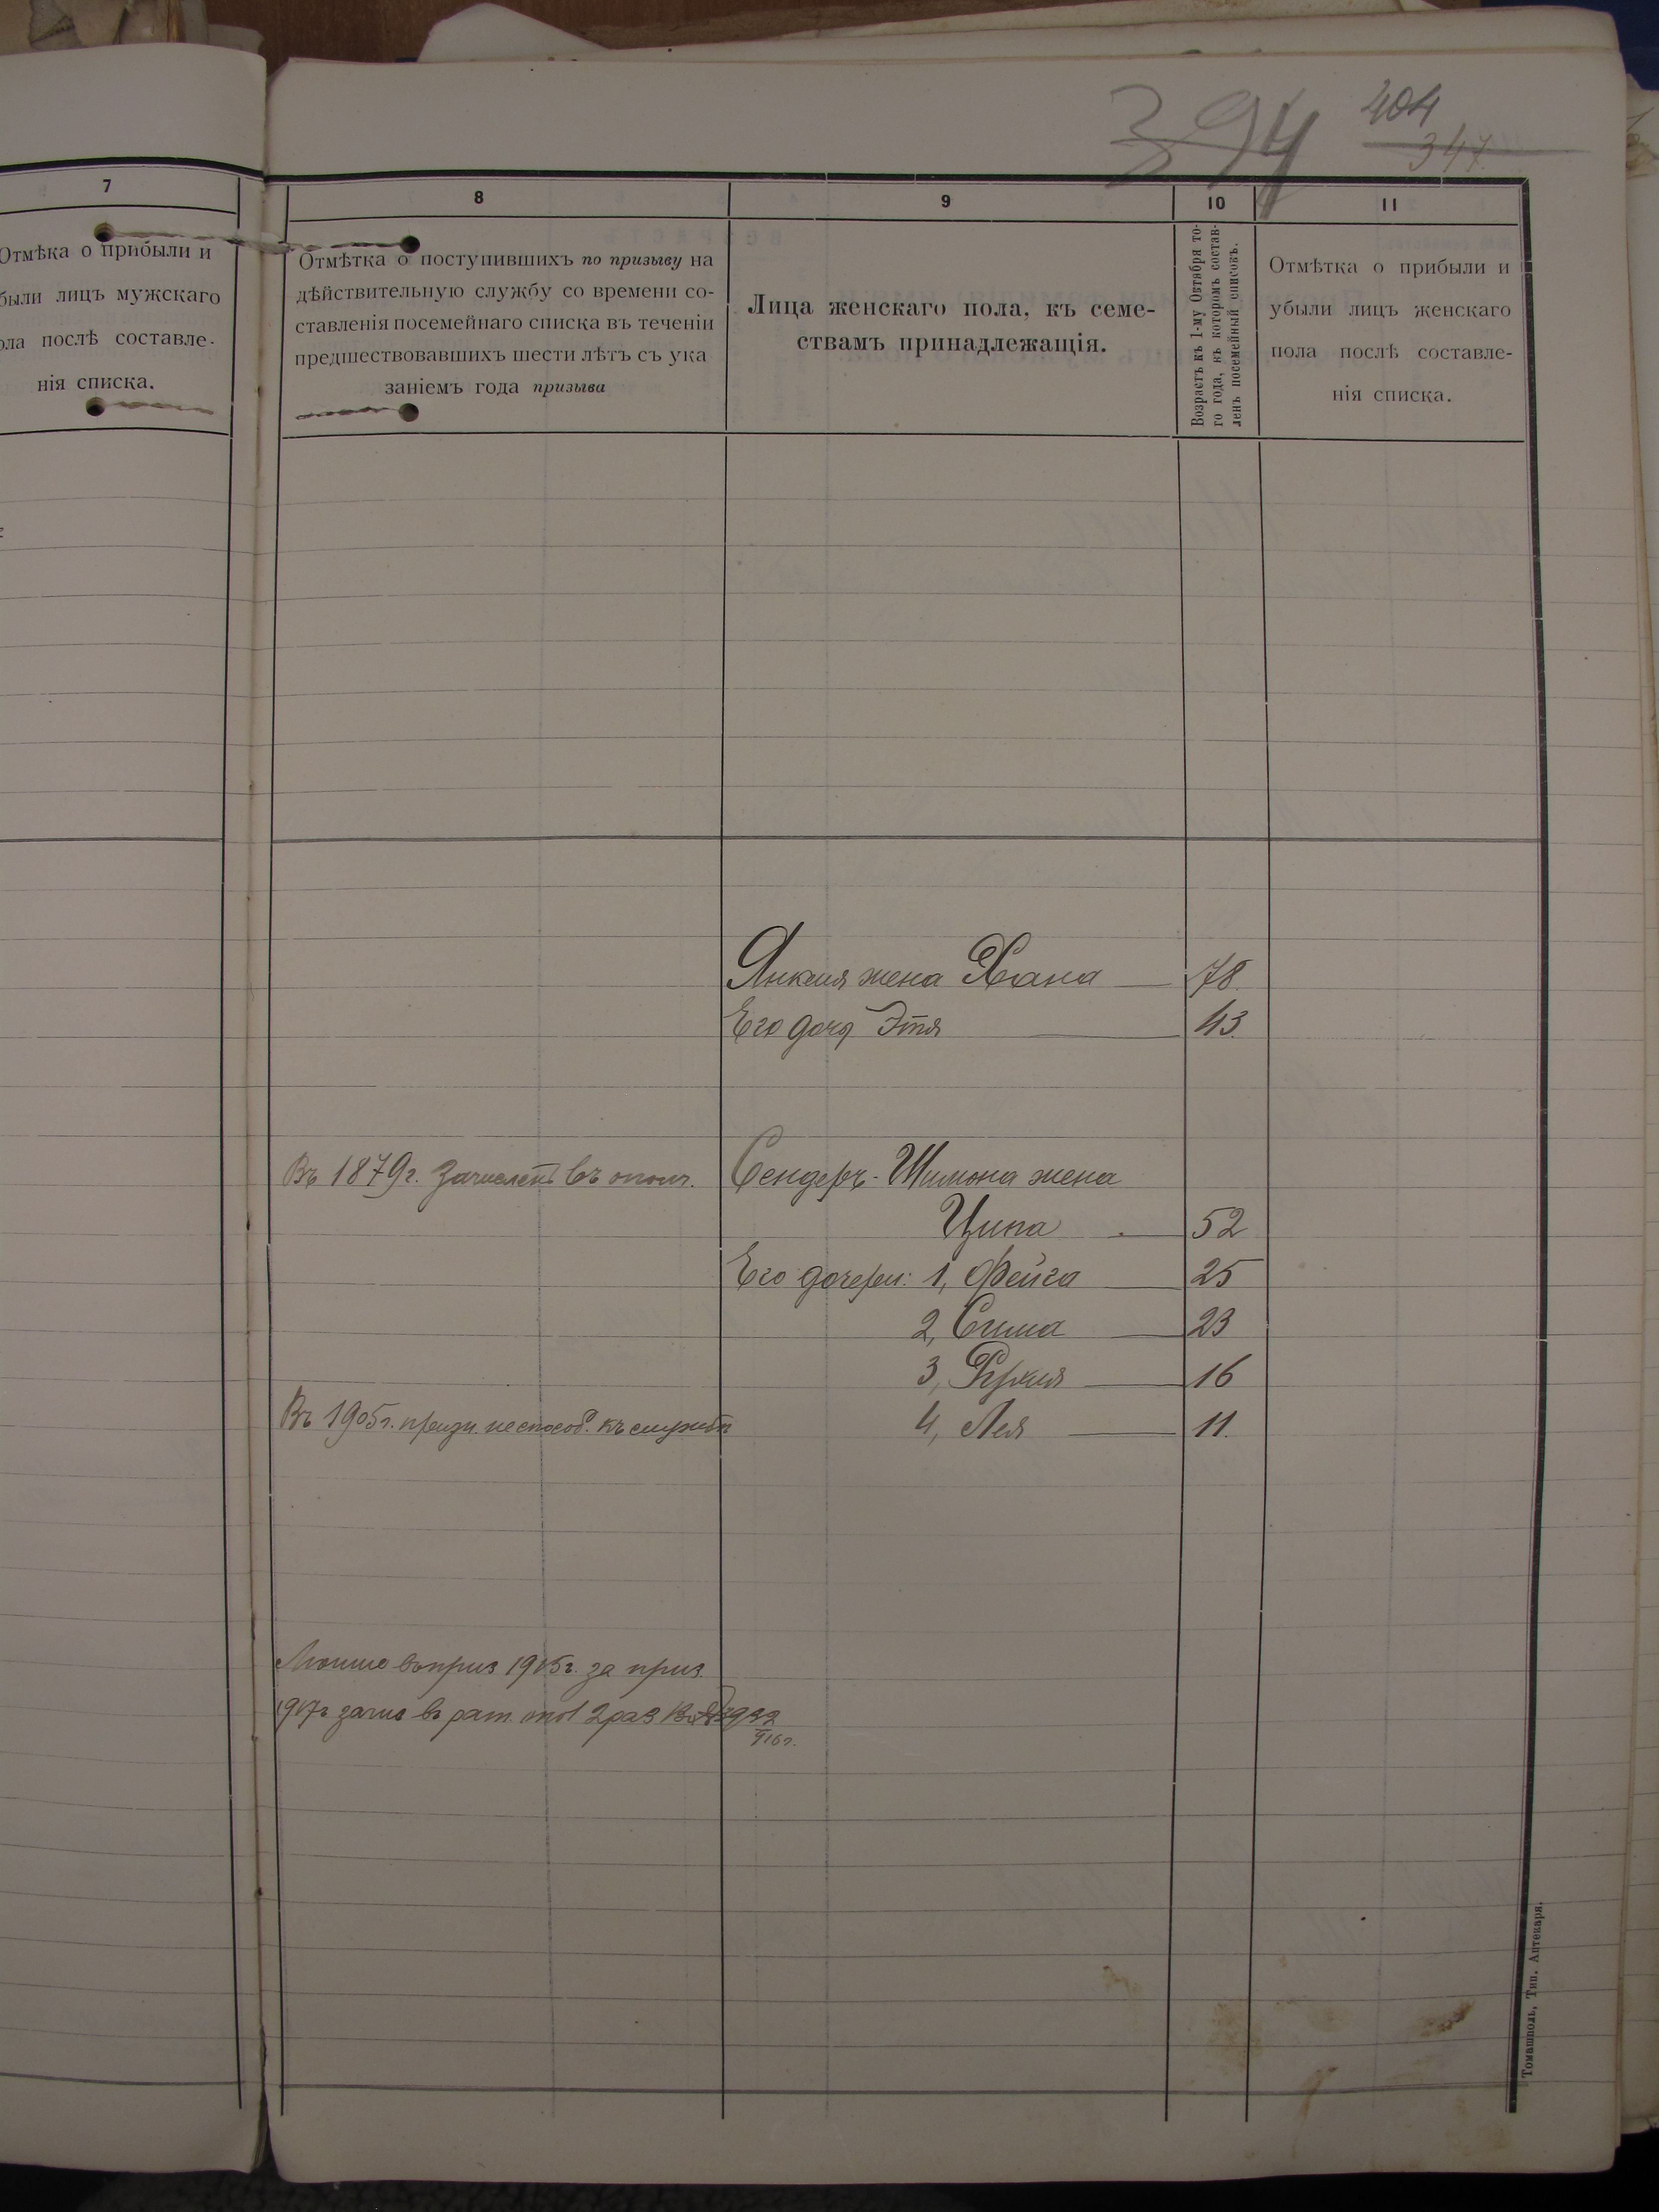 394
404
347
7
Отмѣка о прибыли и
были лицъ мужскаго
ола послѣ составле-
нія списка.
8
9
10
11
Отмѣтка о поступившихъ по призыву на
дѣйствительную службу со времени со-
ставленія посемейнаго списка въ теченіи
предшествовавшихъ шести лѣтъ съ ука
заніемъ года призыва
Лица женскаго пола, къ семе-
ствамъ принадлежащія.
Возрастъ къ 1-му Октября то-
го года, въ которомъ состав-
ленъ посемейный списокъ.
Отмѣтка о прибыли и
убыли лицъ женскаго
пола послѣ составле-
нія списка.
Янкеля жена Хана 78.
Его дочь Этя 43.
Въ 1879г. Зачисленъ въ ополч. Сендеръ-Шимона жена
Ципа 52
Его дочери: 1, Фейга 25
2, Сима 23
3, 16
Въ 1905г. призн. неспособ. къ службѣ 4, Лея 11.
въ приз 1915г. за приз.
1917г зачис въ рат. опол 2 раз
916г.
Томашполь, Тип. Аптекаря.